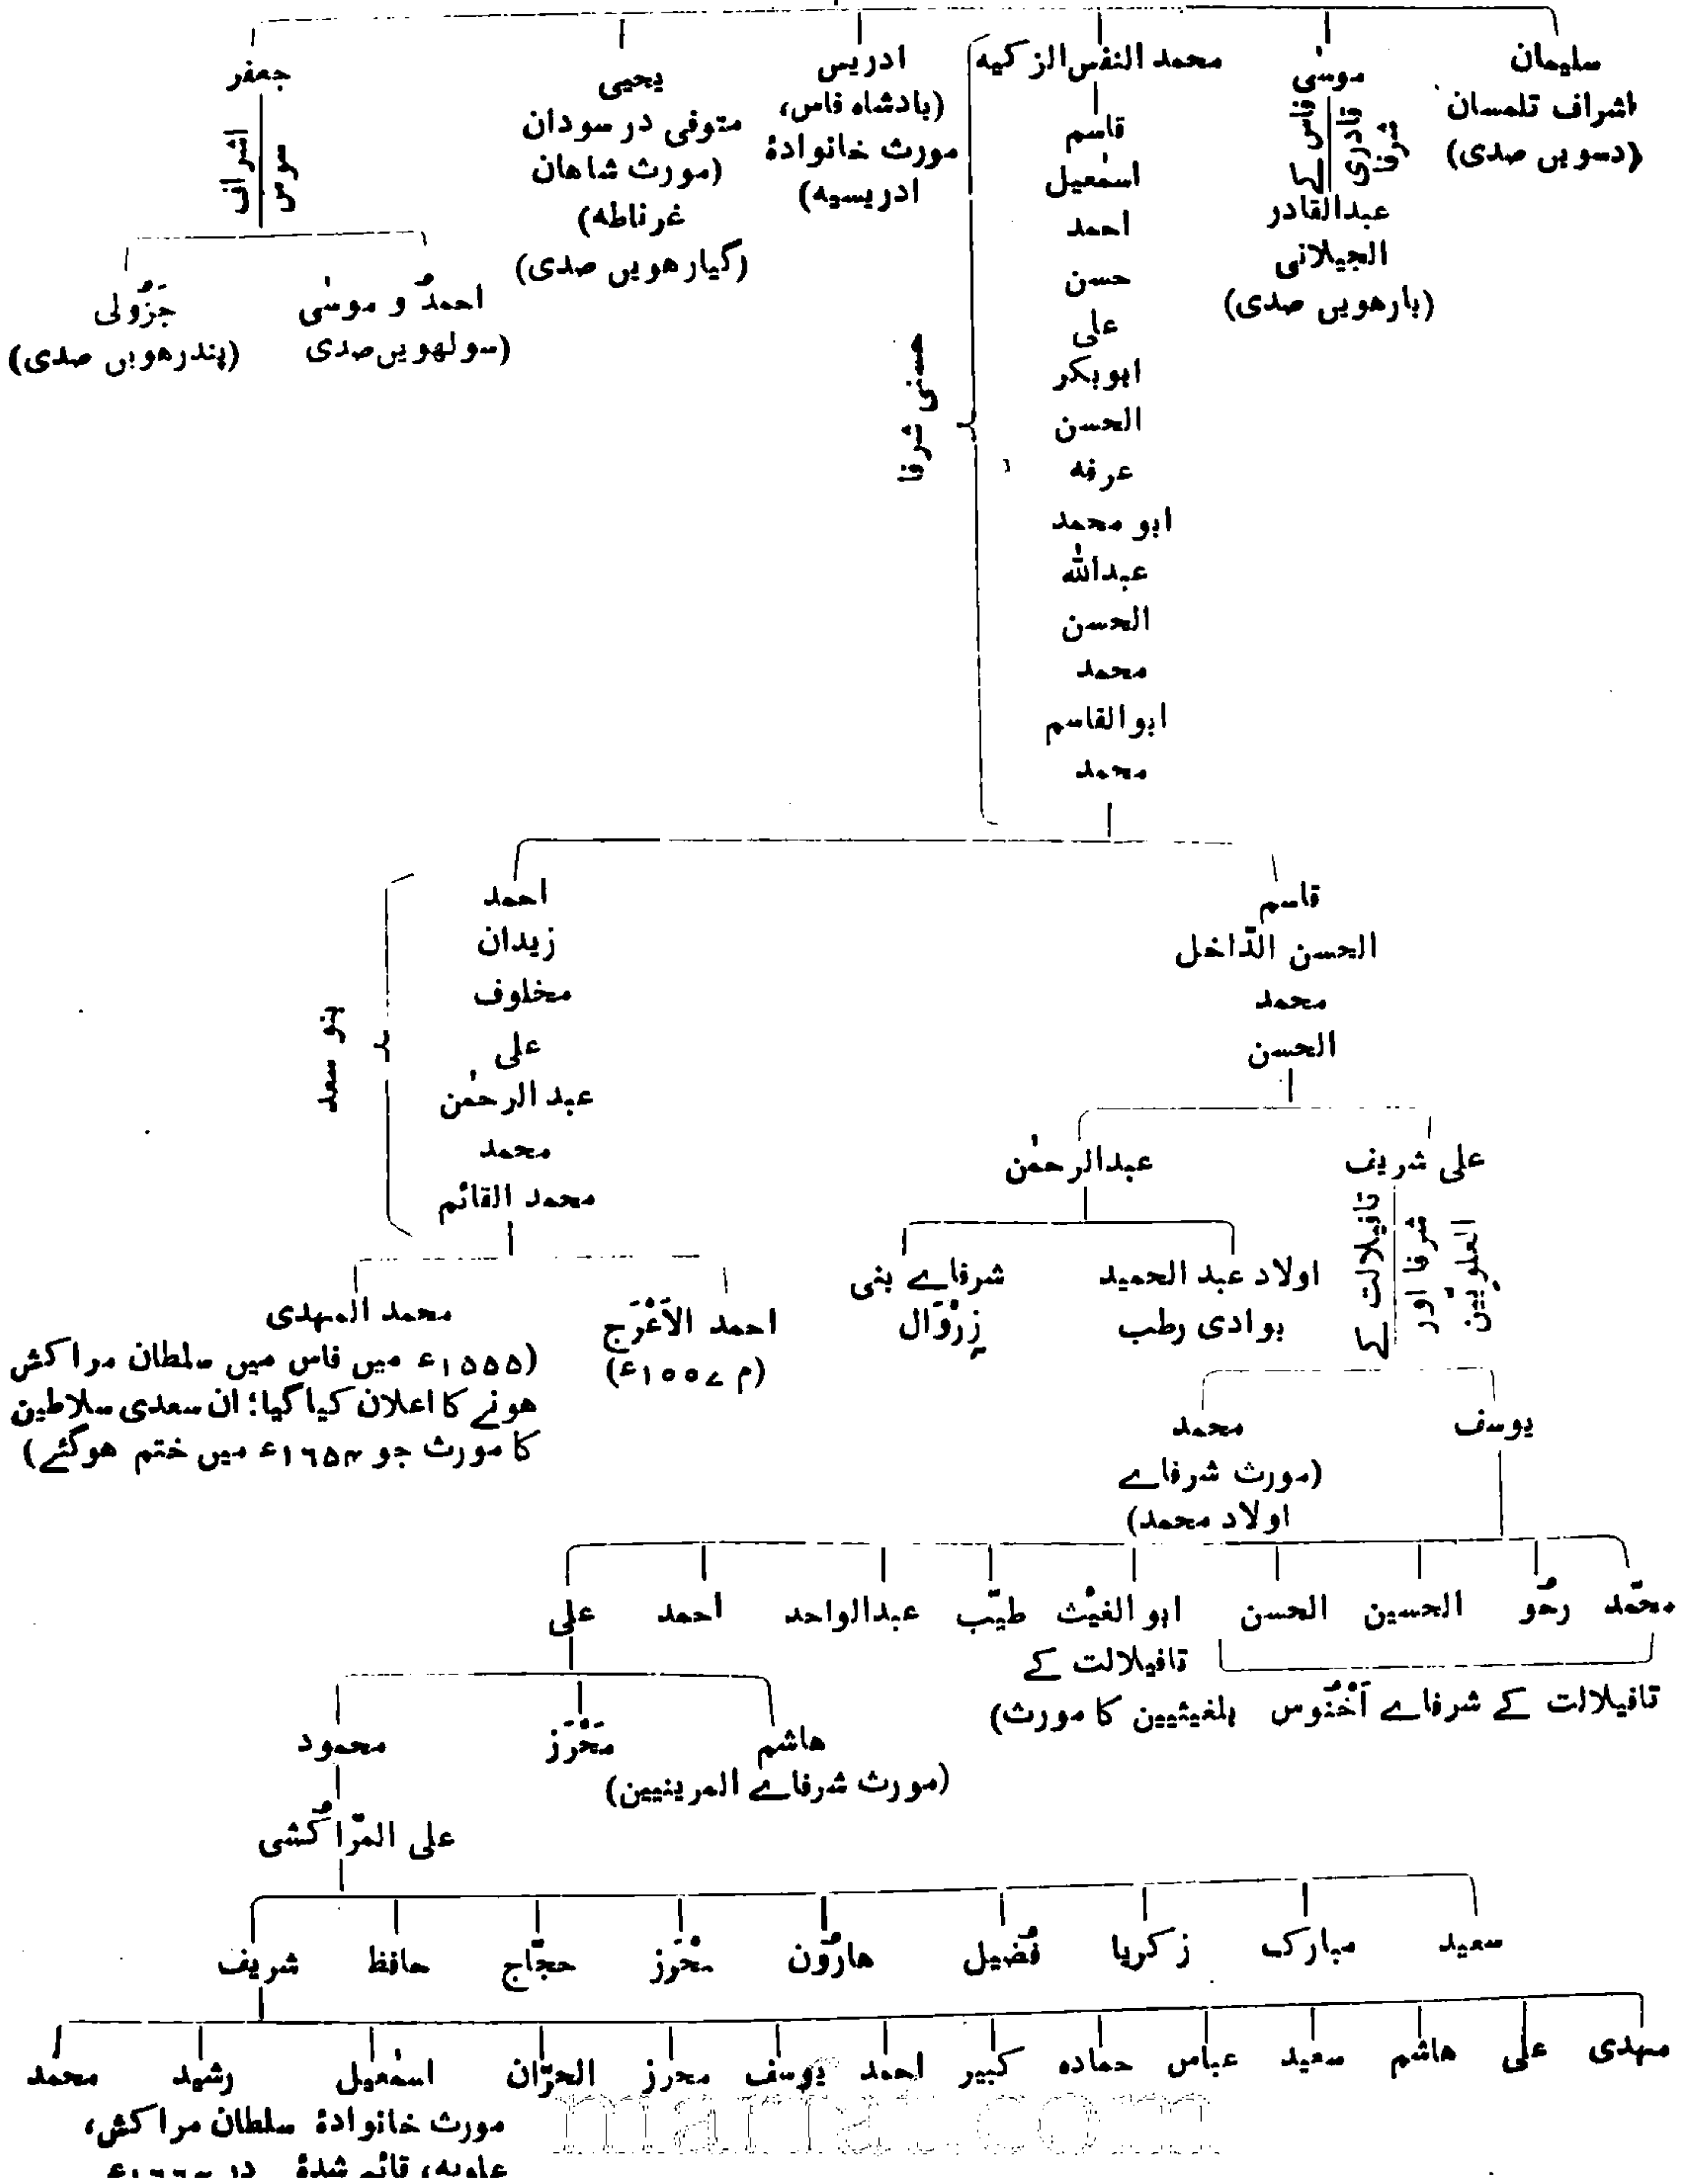 سلیمان
اشراف تلمسان
(دسویں صدی)
موسٰی
فاس کے
قادری
شرفا
عبدالقادر
الجیلانی
(بارھویں صدی)
محمد النفس الزکیه
قاسم
اسمٰعیل
احمد
حسن
علی
ابوبکر
الحسن
عرفه
ابو محمد
عبداللّٰه
الحسن
محمد
ابوالقاسم
محمد
حسنی شرفا
ادریس
(بادشاہ فاس،
مورث خانوادۂ
ادریسیه)
یحیی
متوفی در سودان
(مورث شاھان
غرناطه)
(گیارھویں صدی)
جعفر
اشراف
سوس
احمدُ و موسٰی
(سولھویں صدی
جَزُولی
(پندرھویں صدی)
قاسم
الحسن الدّاخل
محمد
الحسن
احمد
زیدان
مخلوف
علی
عبد الرحمٰن
محمد
محمد القائم
بنو سعد
علی شریف
تافیلالت کے
شرفا اور
العلویّین
عبدالرحمٰن
اولاد عبد الحمید
بوادی رطب
شرفاے بنی
زِرْوَال
احمد الاَعْرَج
(م ۱۵۵۷ء)
محمد المہدی
(۱۵۵۵ء میں فاس میں سلطان مراکش
ھونے کا اعلان کیا گیا؛ ان سعدی سلاطین
کا مورث جو ۱۶۵۴ء میں ختم ھوگئے)
یوسف
محمد
(مورث شرفاے
اولاد محمد)
محمّد رحُو الحسین الحسن ابو الغیْث طیّب عبدالواحد احمد علی
تافیلالت کے
تافیلالت کے شرفاے آخْنُوس بلغیثیین کا مورث)
هاشم مَحْرَز محمود
(مورث شرفاے المرینیین)
علی المرّاکُشی
سعید مبارک زکریا فُضیل هارُون محْرَز حجّاج حافظ شریف
مہدی علی هاشم سعید عباس حماده کبیر احمد یوسف محرز الحرّان اسمٰعیل رشید محمد
مورث خانوادۂ سلطان مراکش،
marfat.com